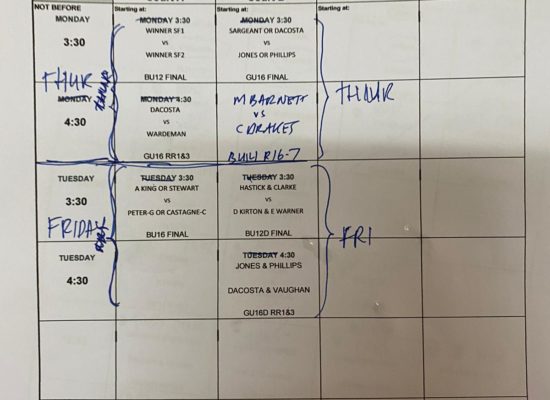 NOT BEFORE
Starting at:
Starting at:
Starting at:
MONDAY
3:30
THUR
MONDAY 3:30
WINNER SF1
vs
WINNER SF2
BU12 FINAL
MONDAY 3:30
SARGEANT OR DACOSTA
vs
JONES OR PHILLIPS
GU16 FINAL
THUR
MONDAY
4:30
THUR
MONDAY 4:30
DACOSTA
vs
WARDEMAN
GU16 RR1&3
M BARNETT
vs
C DRAKES
TUESDAY
3:30
FRIDAY
TUESDAY 3:30
A KING OR STEWART
vs
PETER-G OR CASTAGNE-C
BU16 FINAL
TUESDAY 3:30
HASTICK & CLARKE
vs
D KIRTON & E WARNER
BU12D FINAL
FRI
TUESDAY
4:30
TUESDAY 4:30
JONES & PHILLIPS
DACOSTA & VAUGHAN
GU16D RR1&3